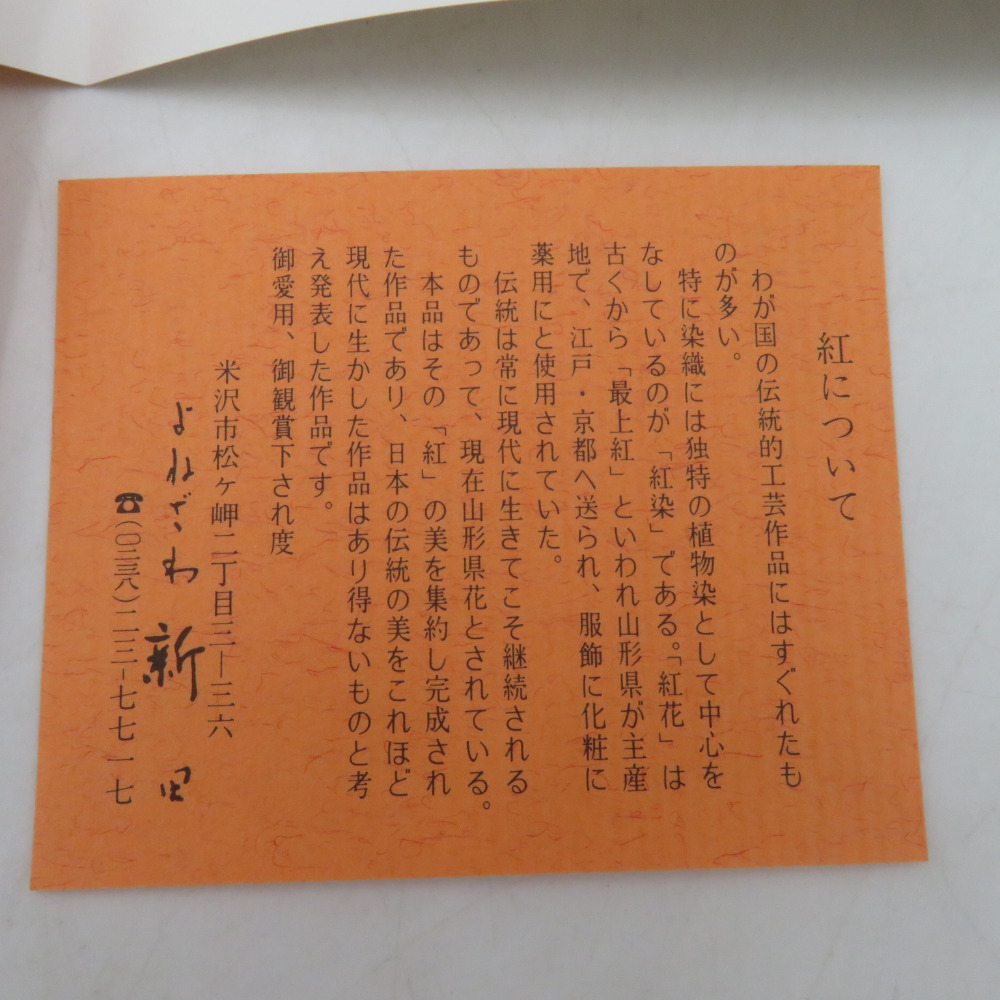 紅について
わが国の伝統的工芸作品にはすぐれたも
のが多い。
特に染織には独特の植物染として中心を
なしているのが「紅染」である。「紅花」は
古くから「最上紅」といわれ山形県が主産
地で、江戸・京都へ送られ、服飾に化粧に
薬用にと使用されていた。
伝統は常に現代に生きてこそ継続される
ものであって、現在山形県花とされている。
本品はその「紅」の美を集約し完成され
た作品であり、日本の伝統の美をこれほど
現代に生かした作品はあり得ないものと考
え発表した作品です。
御愛用、御観賞下され度
米沢市松ヶ岬二丁目三ー三六
よねざわ 新田
☎(〇二三八)二三ー七七一七